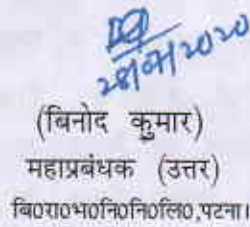 28/07/2020
(बिनोद कुमार)
महाप्रबंधक (उत्तर)
बि0रा0भ0नि0नि0लि0,पटना।